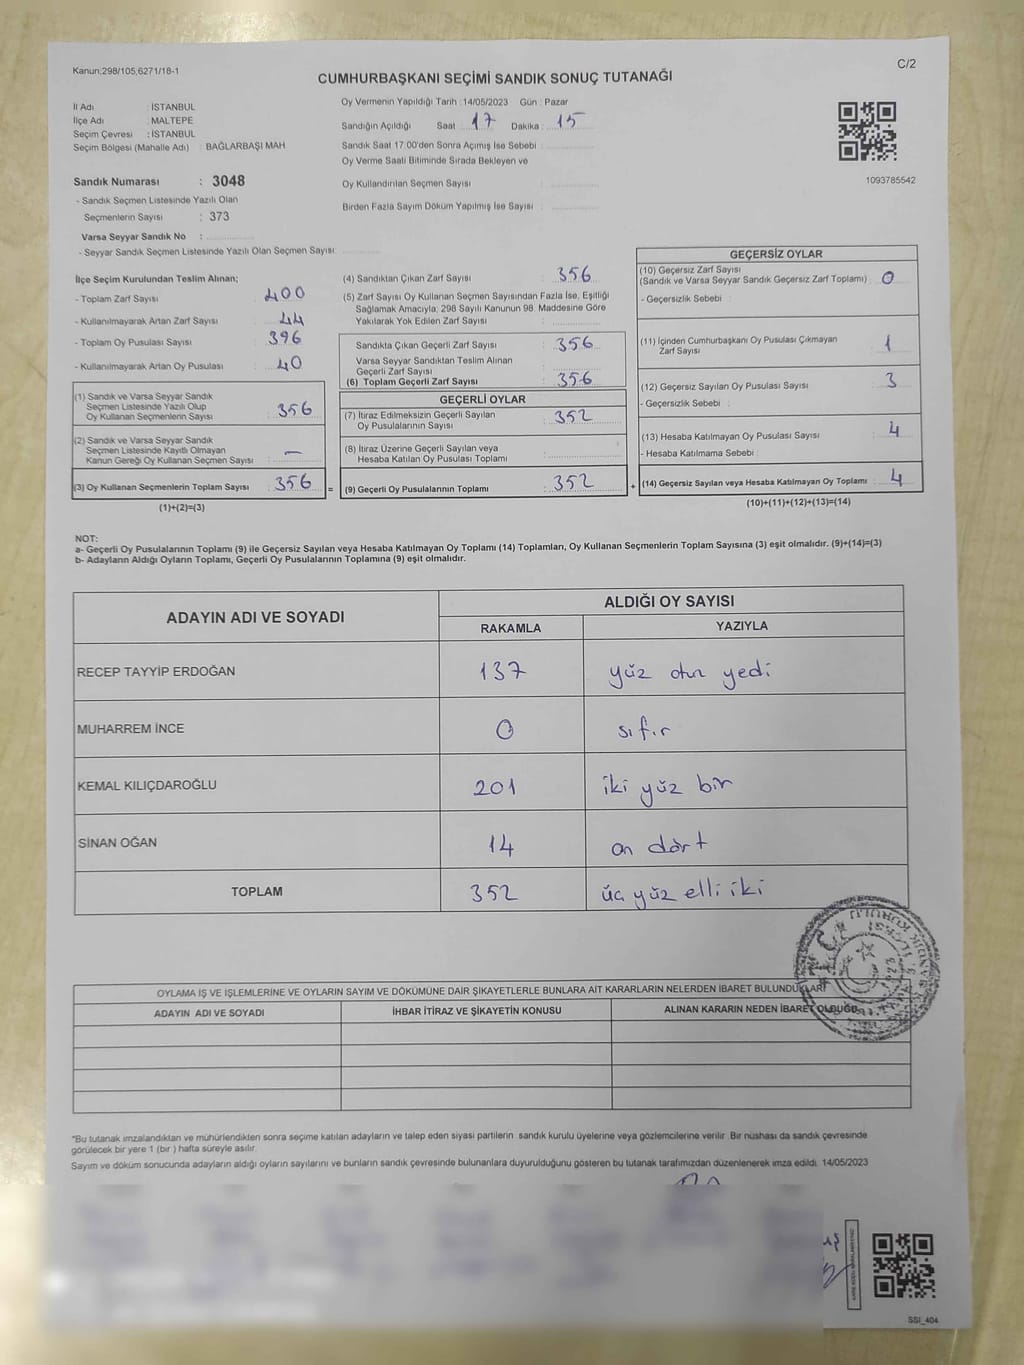 Kanun;298/105;6271/18-1
C/2
CUMHURBAŞKANI SEÇİMİ SANDIK SONUÇ TUTANAĞI
İl Adı : İSTANBUL
İlçe Adı : MALTEPE
Seçim Çevresi : İSTANBUL
Seçim Bölgesi (Mahalle Adı) : BAĞLARBAŞI MAH
Sandık Numarası : 3048
- Sandık Seçmen Listesinde Yazılı Olan
Seçmenlerin Sayısı : 373
Varsa Seyyar Sandık No :
- Seyyar Sandık Seçmen Listesinde Yazılı Olan Seçmen Sayısı:
Oy Vermenin Yapıldığı Tarih : 14/05/2023 Gün : Pazar
Sandığın Açıldığı Saat : 17 Dakika : 15
Sandık Saat 17:00'den Sonra Açımış İse Sebebi :
Oy Verme Saati Bitiminde Sırada Bekleyen ve
Oy Kullandırılan Seçmen Sayısı :
Birden Fazla Sayım Döküm Yapılmış İse Sayısı :
1093785542
İlçe Seçim Kurulundan Teslim Alınan;
- Toplam Zarf Sayısı : 400
- Kullanılmayarak Artan Zarf Sayısı : 44
- Toplam Oy Pusulası Sayısı : 396
- Kullanılmayarak Artan Oy Pusulası : 40
(1) Sandık ve Varsa Seyyar Sandık
Seçmen Listesinde Yazılı Olup
Oy Kullanan Seçmenlerin Sayısı : 356
(2) Sandık ve Varsa Seyyar Sandık
Seçmen Listesinde Kayıtlı Olmayan
Kanun Gereği Oy Kullanan Seçmen Sayısı : —
(3) Oy Kullanan Seçmenlerin Toplam Sayısı : 356
(1)+(2)=(3)
(4) Sandıktan Çıkan Zarf Sayısı : 356
(5) Zarf Sayısı Oy Kullanan Seçmen Sayısından Fazla İse, Eşitliği
Sağlamak Amacıyla; 298 Sayılı Kanunun 98. Maddesine Göre
Yakılarak Yok Edilen Zarf Sayısı :
Sandıkta Çıkan Geçerli Zarf Sayısı : 356
Varsa Seyyar Sandıktan Teslim Alınan
Geçerli Zarf Sayısı :
(6) Toplam Geçerli Zarf Sayısı : 356
GEÇERLİ OYLAR
(7) İtiraz Edilmeksizin Geçerli Sayılan
Oy Pusulalarının Sayısı : 352
(8) İtiraz Üzerine Geçerli Sayılan veya
Hesaba Katılan Oy Pusulası Toplamı :
= (9) Geçerli Oy Pusulalarının Toplamı : 352
GEÇERSİZ OYLAR
(10) Geçersiz Zarf Sayısı
(Sandık ve Varsa Seyyar Sandık Geçersiz Zarf Toplamı) : 0
- Geçersizlik Sebebi :
(11) İçinden Cumhurbaşkanı Oy Pusulası Çıkmayan
Zarf Sayısı : 1
(12) Geçersiz Sayılan Oy Pusulası Sayısı : 3
- Geçersizlik Sebebi :
(13) Hesaba Katılmayan Oy Pusulası Sayısı : 4
- Hesaba Katılmama Sebebi :
+ (14) Geçersiz Sayılan veya Hesaba Katılmayan Oy Toplamı : 4
(10)+(11)+(12)+(13)=(14)
NOT:
a- Geçerli Oy Pusulalarının Toplamı (9) ile Geçersiz Sayılan veya Hesaba Katılmayan Oy Toplamı (14) Toplamları, Oy Kullanan Seçmenlerin Toplam Sayısına (3) eşit olmalıdır. (9)+(14)=(3)
b- Adayların Aldığı Oyların Toplamı, Geçerli Oy Pusulalarının Toplamına (9) eşit olmalıdır.
ADAYIN ADI VE SOYADI
ALDIĞI OY SAYISI
RAKAMLA YAZIYLA
RECEP TAYYİP ERDOĞAN 137 yüz otuz yedi
MUHARREM İNCE 0 sıfır
KEMAL KILIÇDAROĞLU 201 iki yüz bir
SİNAN OĞAN 14 on dört
TOPLAM 352 üç yüz elli iki
OYLAMA İŞ VE İŞLEMLERİNE VE OYLARIN SAYIM VE DÖKÜMÜNE DAİR ŞİKAYETLERLE BUNLARA AİT KARARLARIN NELERDEN İBARET BULUNDUKLARI
ADAYIN ADI VE SOYADI İHBAR İTİRAZ VE ŞİKAYETİN KONUSU ALINAN KARARIN NEDEN İBARET OLDUĞU
*Bu tutanak imzalandıktan ve mühürlendikten sonra seçime katılan adayların ve talep eden siyasi partilerin sandık kurulu üyelerine veya gözlemcilerine verilir. Bir nüshası da sandık çevresinde
görülecek bir yere 1 (bir ) hafta süreyle asılır.
Sayım ve döküm sonucunda adayların aldığı oyların sayılarını ve bunların sandık çevresinde bulunanlara duyurulduğunu gösteren bu tutanak tarafımızdan düzenlenerek imza edildi. 14/05/2023
SSI_404